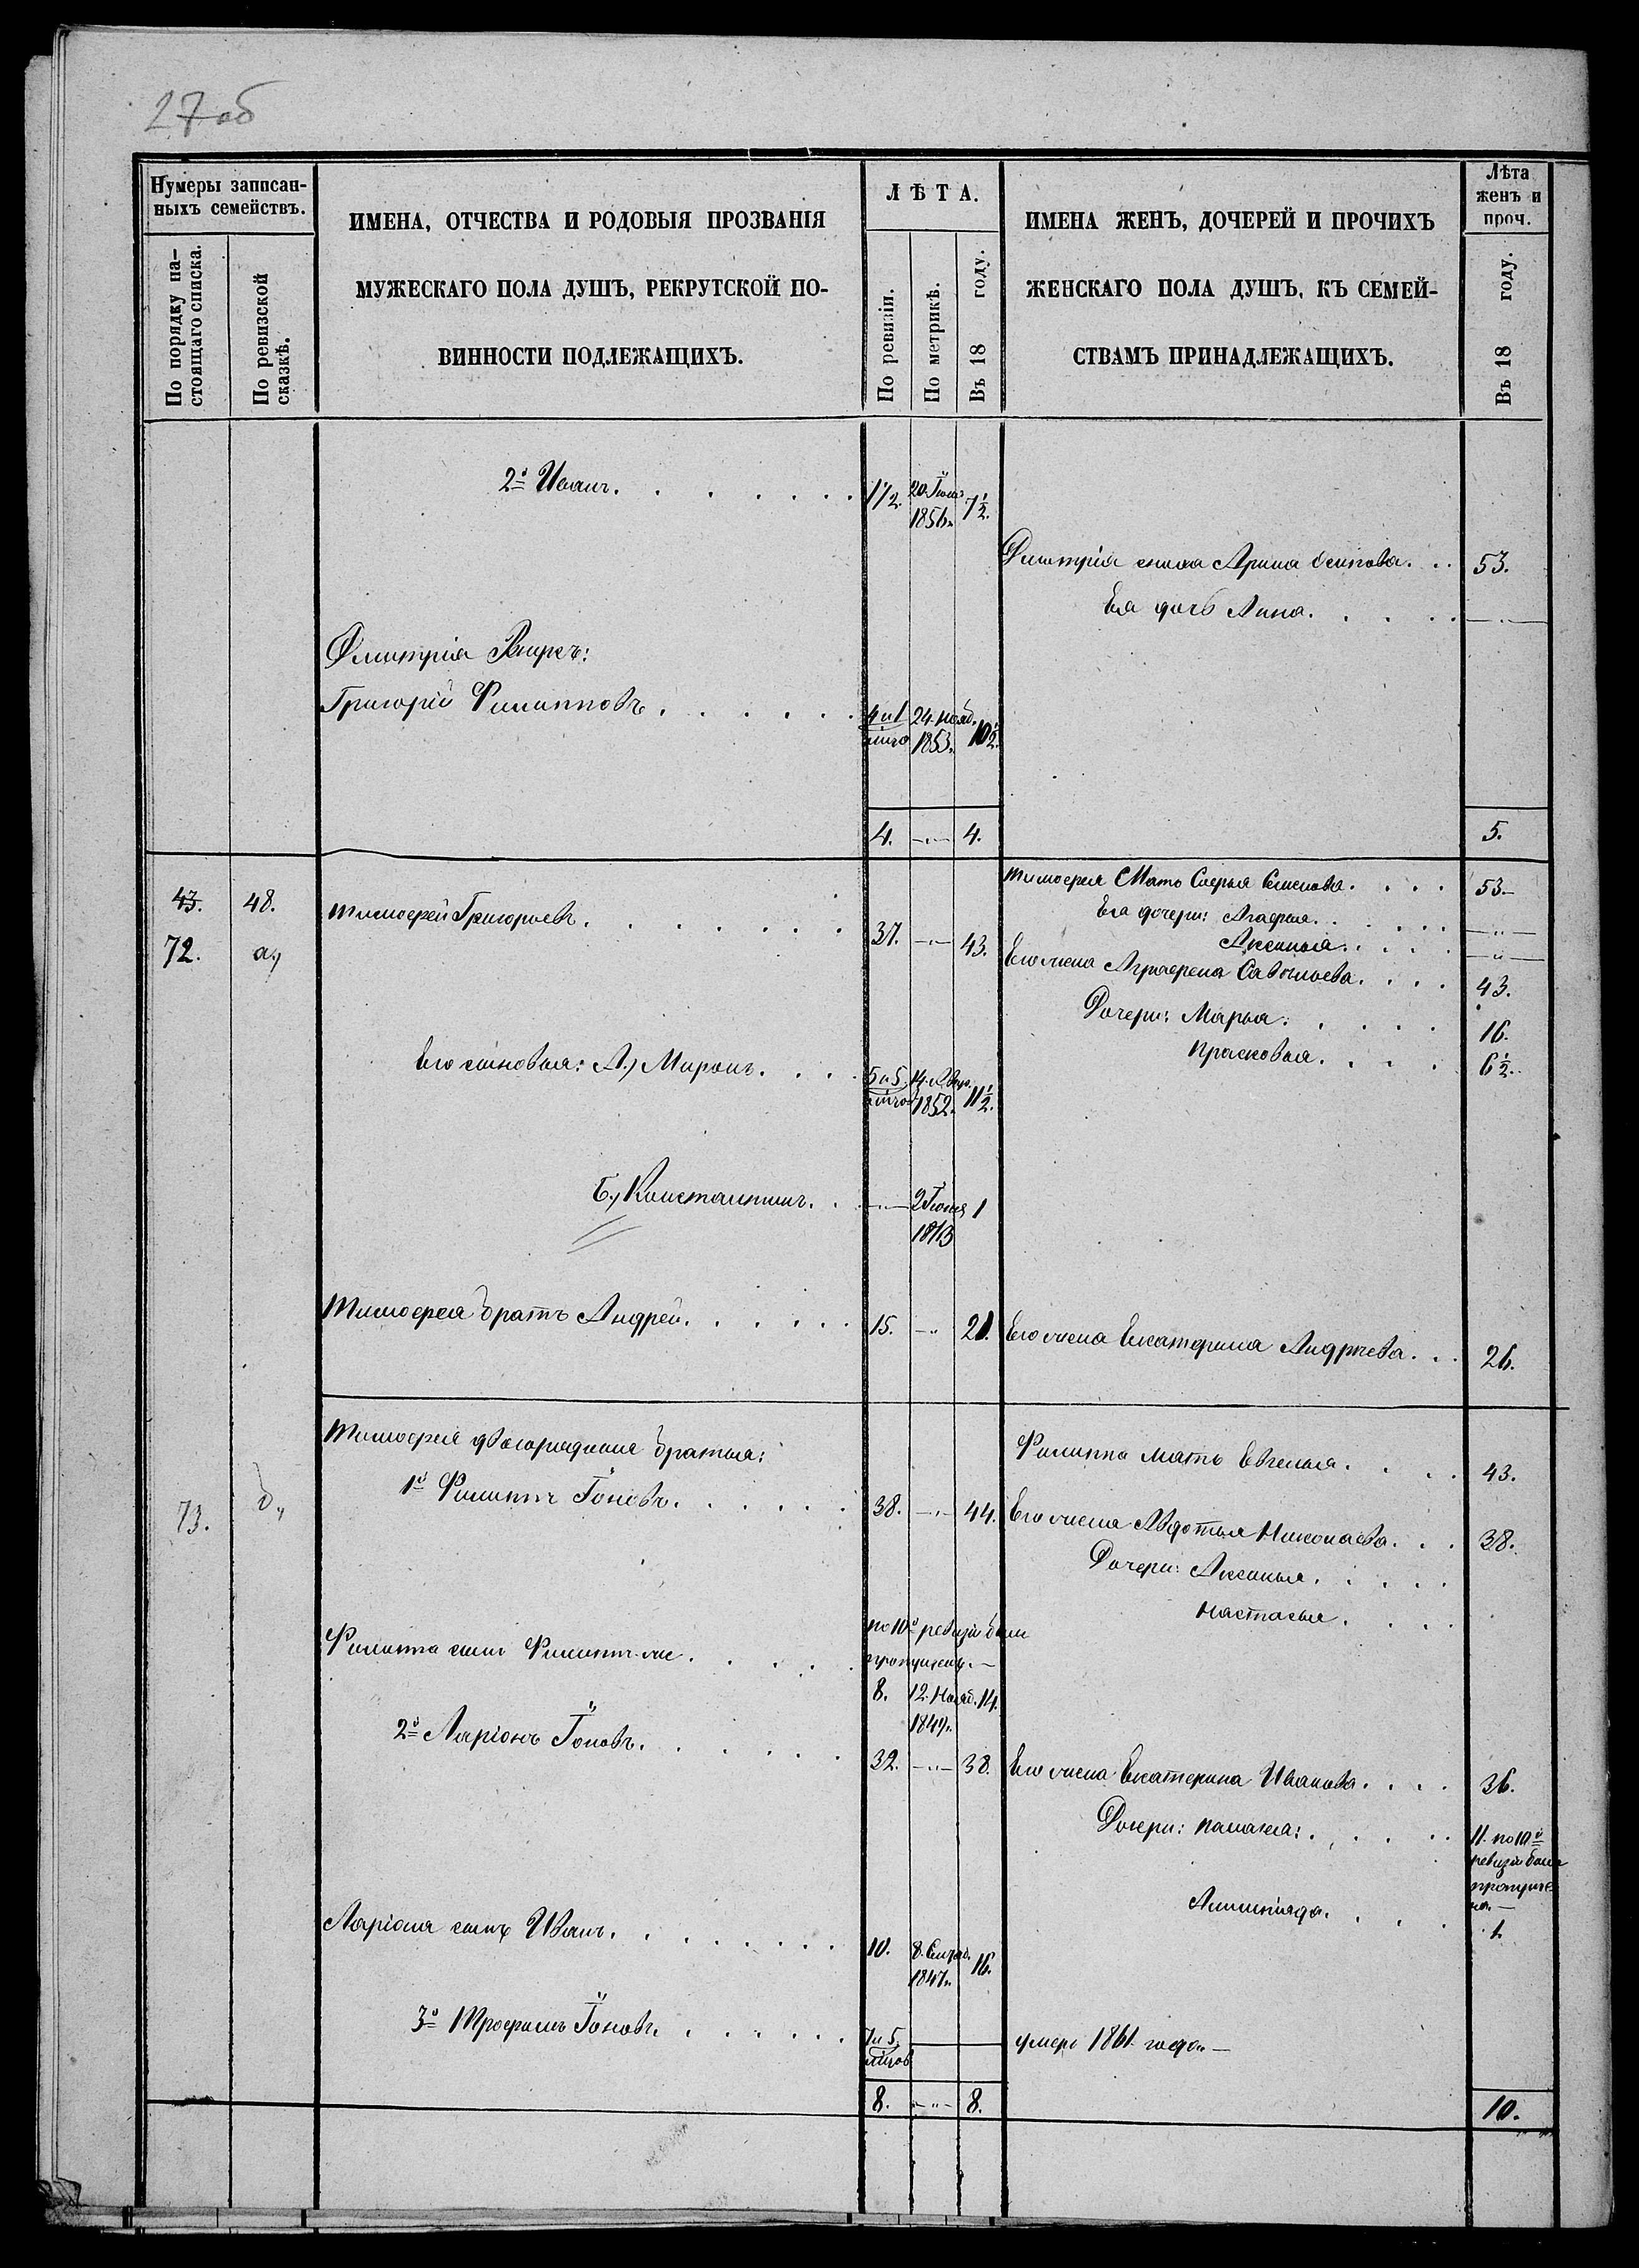 27 об
Нумеры записан-
ныхъ семействъ.
По порядку на-
стоящаго списка.
По ревизской
сказкѣ.
ИМЕНА, ОТЧЕСТВА И РОДОВЫЯ ПРОЗВАНІЯ
МУЖЕСКАГО ПОЛА ДУШЪ, РЕКРУТСКОЙ ПО-
ВИННОСТИ ПОДЛЕЖАЩИХЪ.
ЛѢТА.
По ревизіи.
По метрикѣ.
Въ 18 году.
ИМЕНА ЖЕНЪ, ДОЧЕРЕЙ И ПРОЧИХЪ
ЖЕНСКАГО ПОЛА ДУШЪ, КЪ СЕМЕЙ-
СТВАМЪ ПРИНАДЛЕЖАЩИХЪ.
Лѣта
женъ и
проч.
Въ 18 году.
2й Иванъ. 1 1/2. 20 1856. 7 1/2.
Дмитрія сноха Арина Осипова. 53.
Ея дочь Анна. — " —
Дмитрія
Григорій Филипповъ. 4 и 1 24. нояб. 1853. 10 1/2.
4. — " — 4. 5.
43. 48. Тимофея Мать Софья Семенова. 53 —
72. а.) Тимофей Григорьевъ. 37. — " — 43.
Ея дочери: Агафья. — " —
Аксинья. — " —
Его жена Аграфена Савельева. 43.
Дочери: Марья. 16.
Прасковья. 6 1/2.
Его сыновья: А.) Миронъ. 5 и 5. 14. 1852. 11 1/2.
Б.) Константинъ. — " — 2 Іюня 1863 1
Тимофея братъ Андрей. 15. — " 21. Его жена Екатерина Андреева. 26.
Тимофея двоюродные братья:
73. б., 1й Филиппъ Іоновъ. 38. — " — 44.
Филиппа мать Евгенья. 43.
Его жена Авдотья Николаева. 38.
Дочери: Аксинья.
Настасья.
Филиппа сынъ Филиппъ же. по 10й ревизіи былъ
пропущенъ. —
8. 12. Нояб. 1849. 14.
2й Ларіонъ Іоновъ. 32. — " — 38. Его жена Екатерина Иванова. 36.
Дочери: Палагея: 11. по 10й
ревизіи была
пропуще-
на. —
1.
Ларіона сынъ Иванъ. 10. 8. Сентяб. 1847. 16.
3й Трофимъ Іоновъ. 7 и 5. умеръ 1861 года. —
8. — " — 8. 10.